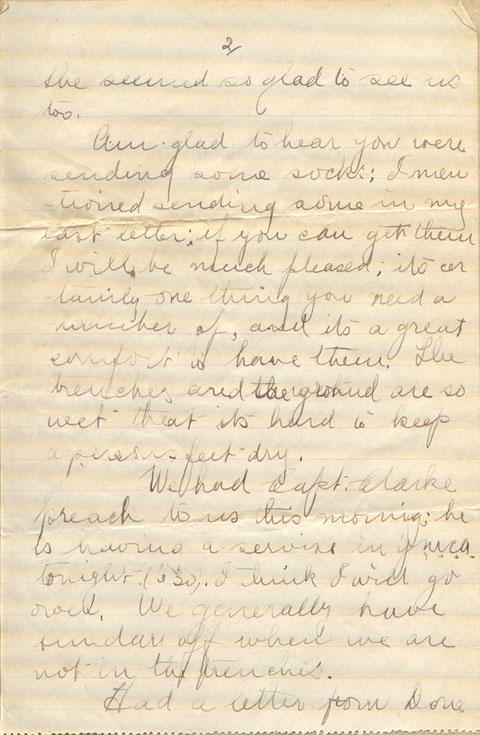 2
she seemed so glad to see us
too.
Am glad to hear you were
sending some socks; I men
-tioned sending some in my
last letter; if you can get them
I will be much pleased; its cer
-tainly one thing you need a
number of, and its a great
comfort to have them. The
trenches and the ground are so
wet that its hard to keep
a persons feet dry.
We had Capt. Clarke
preach to us this morning; he
is having a service in Y.M.C.A.
tonight (6 30). I think I will go
over. We generally have
sunday off when we are
not in the trenches.
Had a letter from Dora